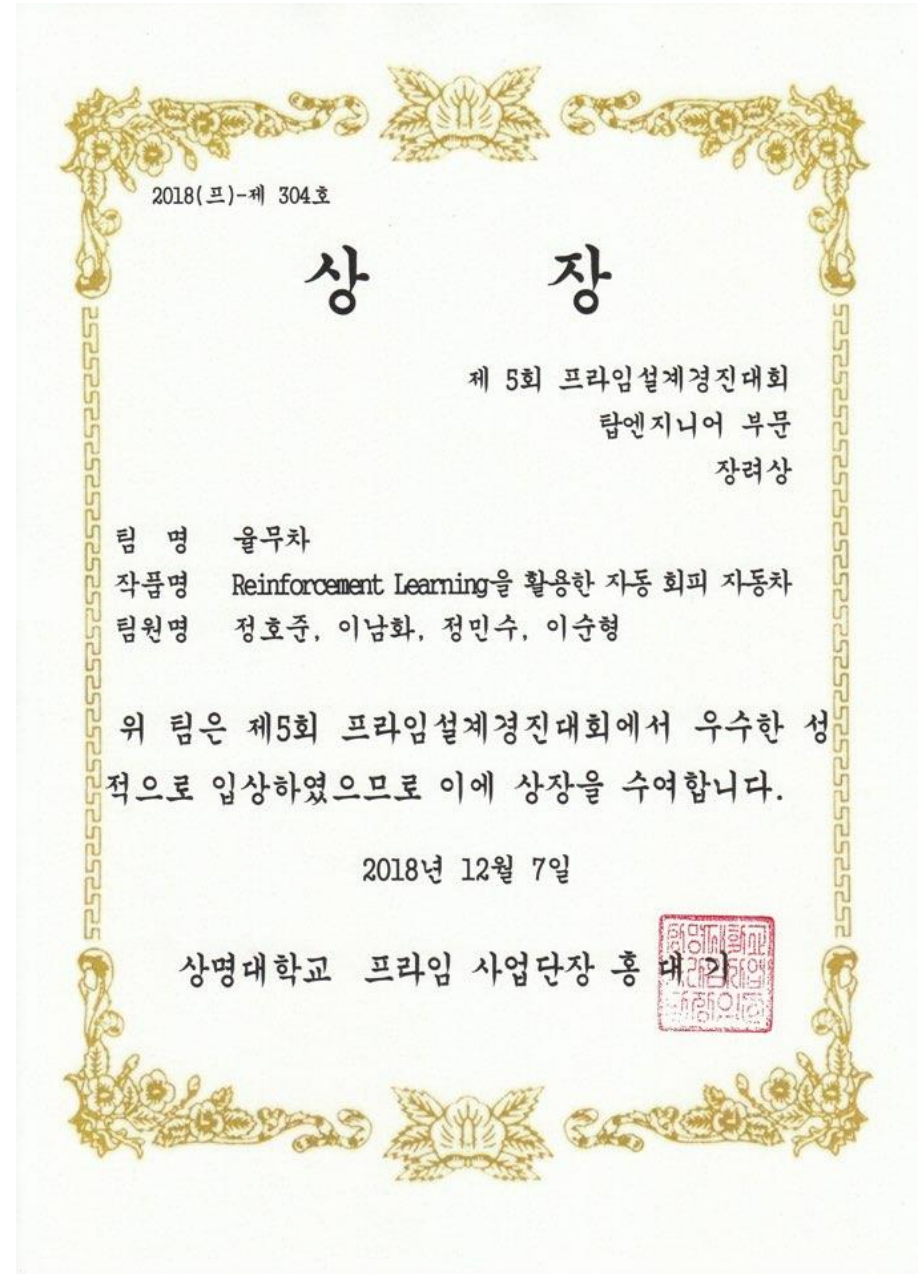 2018(프)-제 304호
상 장
제 5회 프라임설계경진대회
탑엔지니어 부문
장려상
팀 명 율무차
작품명 Reinforcement Learning을 활용한 자동 회피 자동차
팀원명 정호준, 이남화, 정민수, 이순형
위 팀은 제5회 프라임설계경진대회에서 우수한 성
적으로 입상하였으므로 이에 상장을 수여합니다.
2018년 12월 7일
상명대학교 프라임 사업단장 홍 대 기